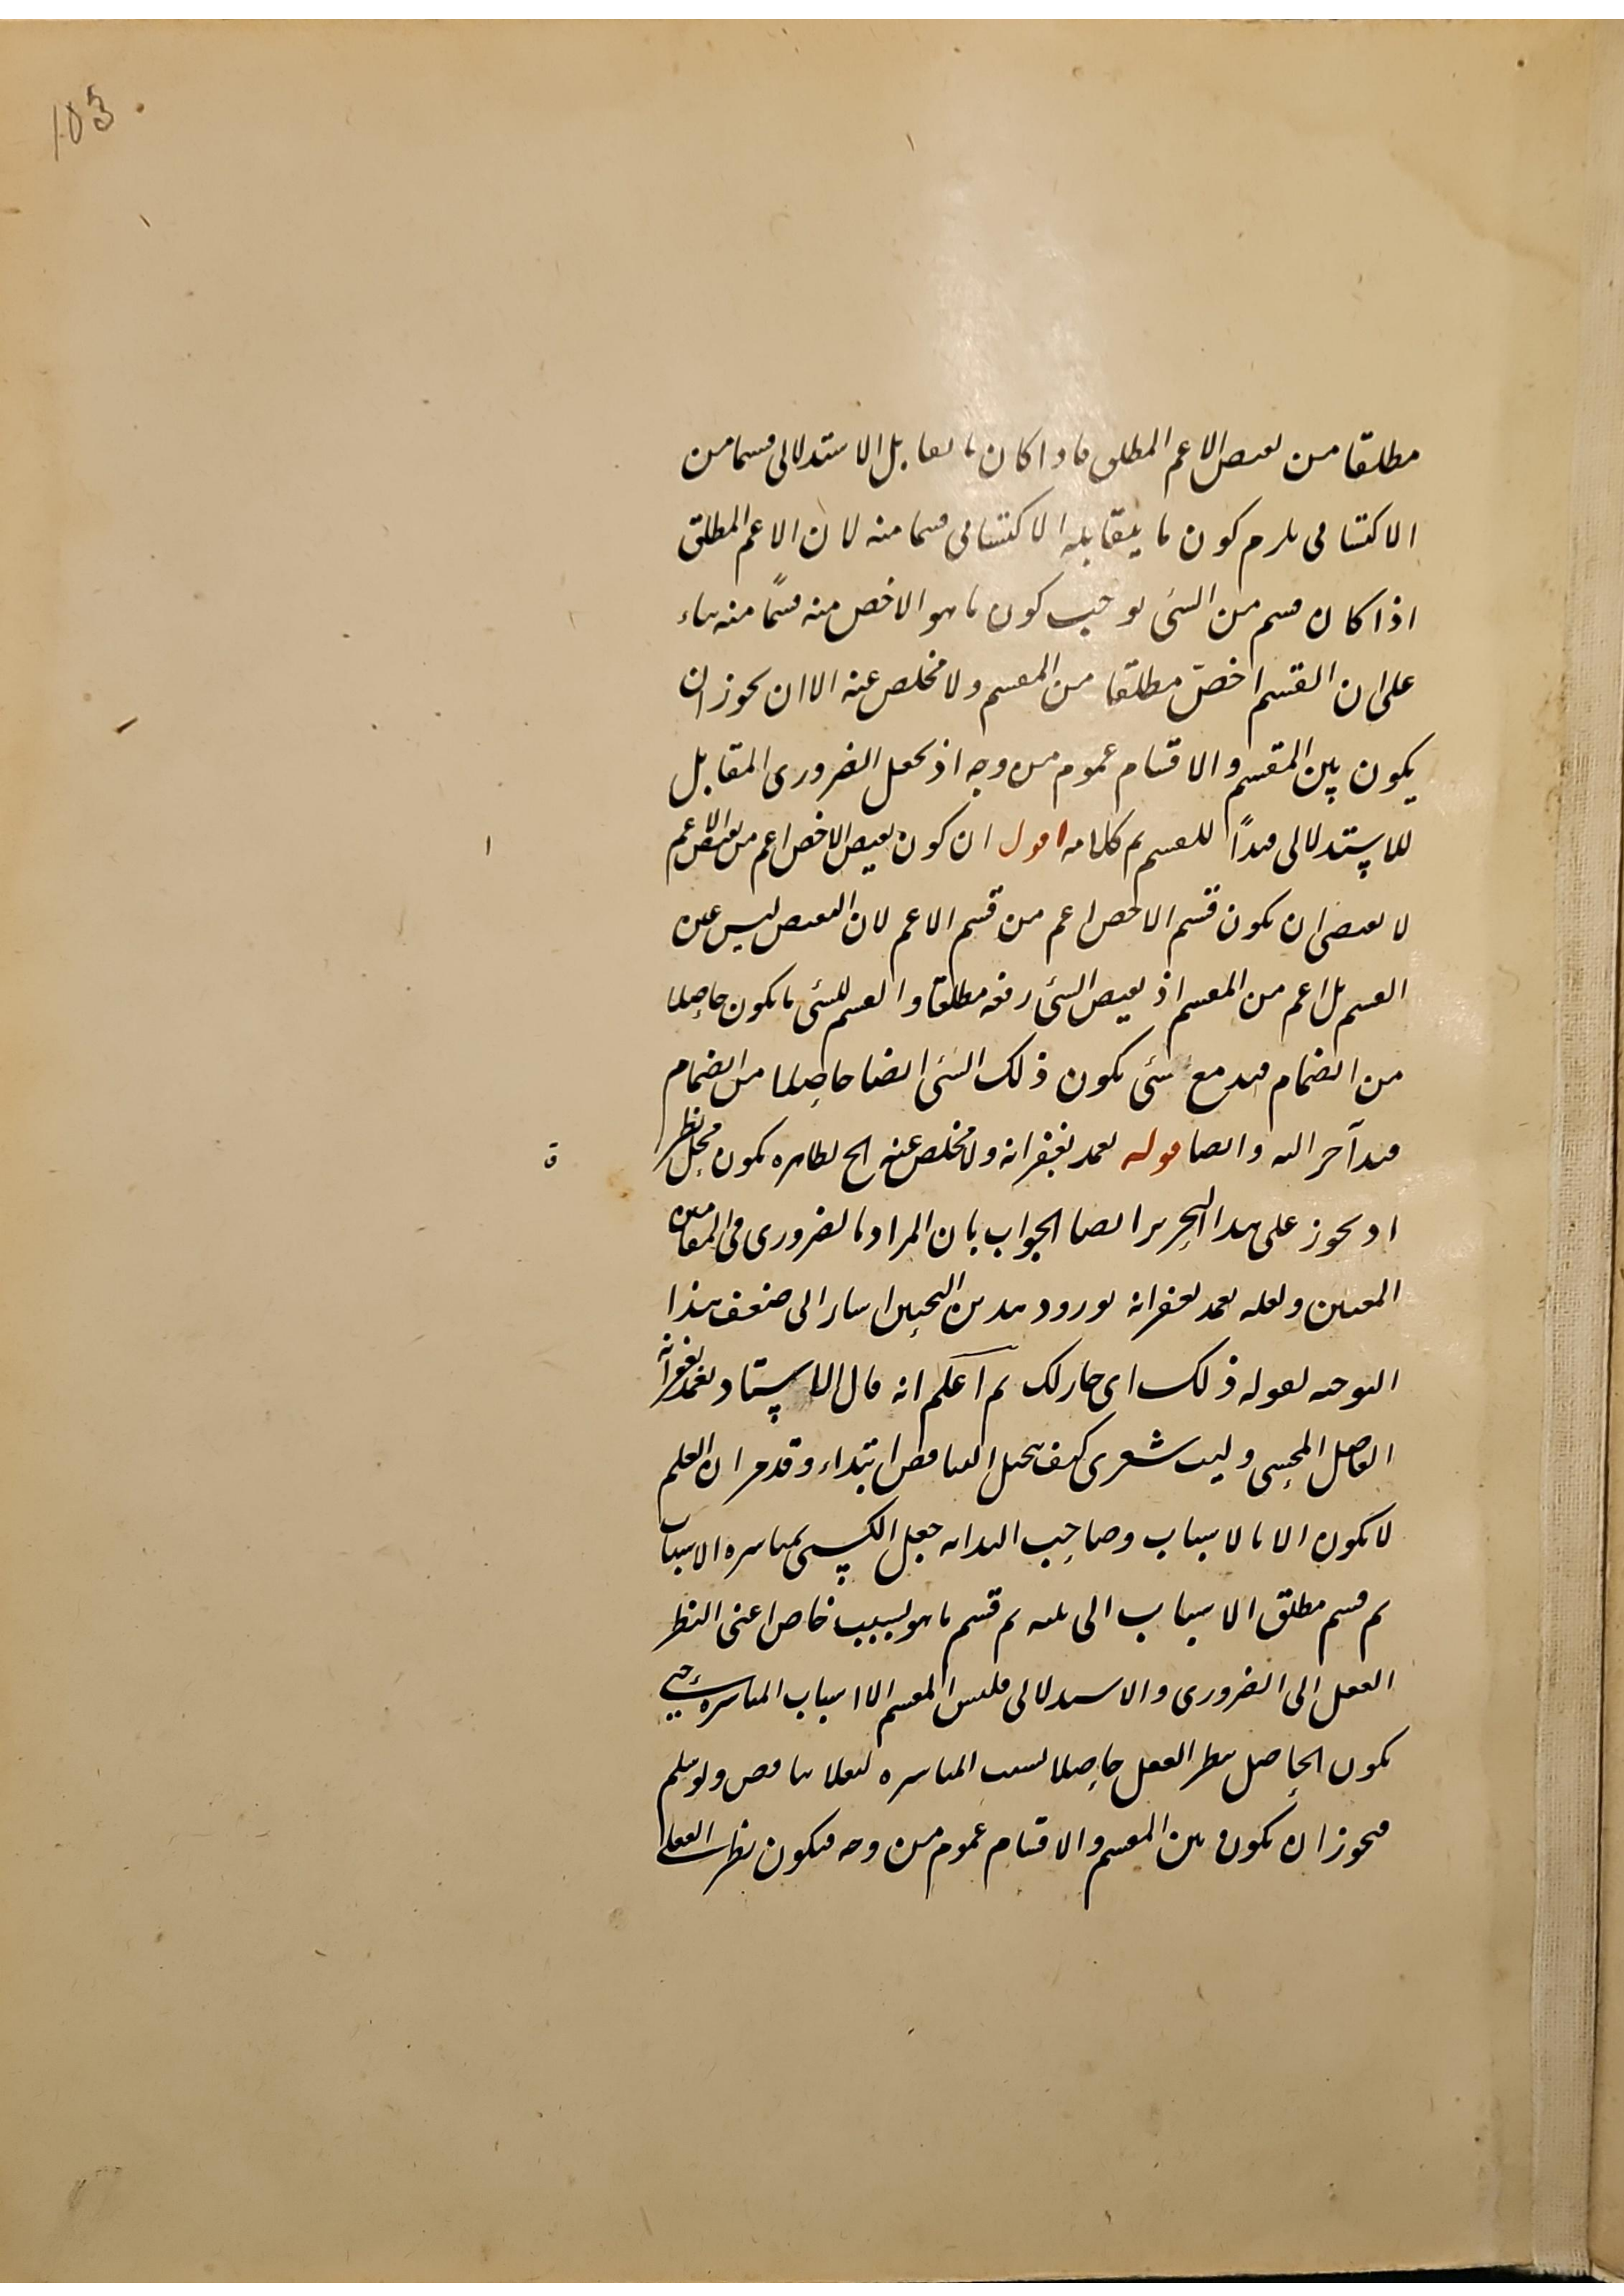 103
مطلقا من نقيض الاعم المطلق فاذا كان ما يقابل الاستدلالى قسما من
الاكتسابى يلزم كون ما يقابله الاكتسابى قسما منه لان الاعم المطلق
اذا كان قسم من الشئ يوجب كون ما هو الاخص منه قسمًا منه بناء
على ان القسم اخص مطلقا من المقسم ولا مخلص عنه الا ان يجوز ان
يكون بين المقسم والاقسام عموم من وجه اذ جعل الضرورى المقابل
للاستدلالى قيدًا للقسم تم كلامه اقول ان كون نقيض الاخص اعم من نقيض الاعم
لا يقتضى ان يكون قسم الاخص اعم من قسم الاعم لان النقيض ليس عين
القسم بل اعم من القسم اذ نقيض الشئ رفعه مطلقا والقسم للشئ ما يكون حاصلا
من انضمام قيد مع شئ يكون ذلك الشئ ايضا حاصلا من انضمام
قيد آخر اليه وايضا قوله تغمد بغفرانه ولا مخلص عنه الخ بظاهره يكون محل نظر
اذ يجوز على هذا التحرير ايضا الجواب بان المراد بالضرورى فى المقامين
المعنيين ولعله تغمد بغفرانه لورود هذين البحثين اشار الى ضعف هذا
التوجيه بقوله ذلك اى جاز لك ثم اعلم انه قال الاستاد تغمد بغفرانه
الفاضل المحشى وليت شعرى كيف يتخيل التناقض ابتداء وقد مر ان العلم
لا يكون الا بالاسباب وصاحب البداية جعل الكسبى بمباشرة الاسباب
ثم قسم مطلق الاسباب الى ثلثه ثم قسم ما هو لسبب خاص اعنى النظر
العقل الى الضرورى والاستدلالى فليس المقسم الا اسباب المباشرة حتى
يكون الحاصل بنظر العقل حاصلا بسبب المباشرة فلا تناقض ولو سلم
فيجوز ان يكون بين المقسم والاقسام عموم من وجه فيكون نظر العقل